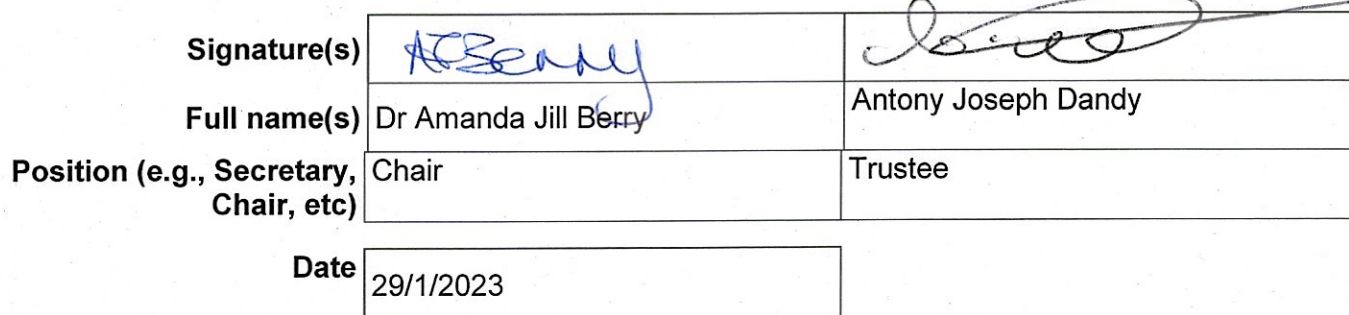 Signature(s) AJBerry
Full name(s) Dr Amanda Jill Berry Antony Joseph Dandy
Position (e.g., Secretary, Chair Trustee
Chair, etc)
Date 29/1/2023